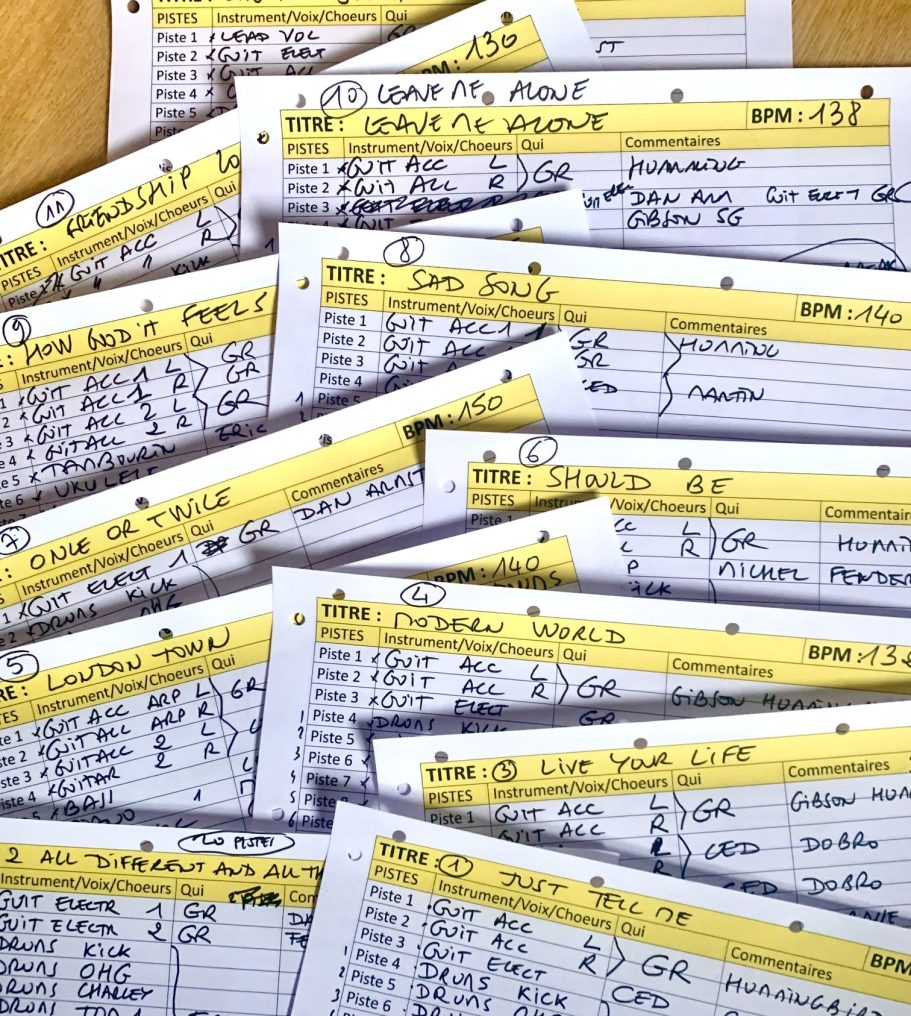 PISTES Instrument/Voix/Choeurs Qui
Piste 1 x LEAD VOC
Piste 2 x GUIT ELECT
Piste 3 x GUIT
Piste 4 x
Piste 5
BPM : 130
10 LEAVE ME ALONE
TITRE : LEAVE ME ALONE BPM : 138
PISTES Instrument/Voix/Choeurs Qui Commentaires
Piste 1 x GUIT ACC L GR HUMMING
Piste 2 x GUIT ACC R DAN AM GUIT ELECT GR
Piste 3 GIBSON SG
11
TITRE : FRIENDSHIP
PISTES Instrument/Voix/Choeurs Qui
Piste GUIT ACC L
" " R
KICK
8
TITRE : SAD SONG BPM : 140
PISTES Instrument/Voix/Choeurs Qui Commentaires
Piste 1 GUIT ACC 1 GR HUMMING
Piste 2 GUIT ACC GR
Piste 3 GUIT ACC CED MARTIN
Piste 4
Piste 5
9
: HOW GOD'H FEELS
Instrument/Voix/Choeurs Qui
1 x GUIT ACC 1 L GR
2 x GUIT ACC 1 R GR
3 x GUIT ACC 2 L GR
4 x GUITACC 2 R
5 x TAMBOURIN ERIC
6 x UKULELE
BPM : 150
7
: ONCE OR TWICE
Instrument/Voix/Choeurs Qui Commentaires
1 x GUIT ELECT 1 GR DAN ARMST
2 x DRUMS KICK
OHG
6
TITRE : SHOULD BE
PISTES Instrument/Voix/Choeurs Qui Commentair
Piste 1 L GR HUMMI
R
MICHEL FENDER
KICK
BPM : 140
5
: LONDON TOWN
Instrument/Voix/Choeurs Qui
1 x GUIT ACC ARP L GR
2 x GUIT ACC ARP R
3 x GUITACC 2 L
4 x GUITAR 2 R
5 x BAJJ 1
4
TITRE : MODERN WORLD BPM : 138
PISTES Instrument/Voix/Choeurs Qui Commentaires
Piste 1 x GUIT ACC L GR GIBSON HUMMIN
Piste 2 x GUIT ACC R
Piste 3 x GUIT ELECT GR
Piste 4 DRUMS KICK
Piste 5 x
Piste 6
Piste 7 x
Piste
TITRE : 3 LIVE YOUR LIFE
PISTES Instrument/Voix/Choeurs Qui Commentaires
Piste 1 GUIT ACC L GR GIBSON HUM
GUIT ACC R
CED DOBRO
R
CED DOBRO
20 PISTES
2 ALL DIFFERENT AND ALL TH
Instrument/Voix/Choeurs Qui Com
GUIT ELECTR 1 GR
GUIT ELECTR 2 GR
DRUMS KICK
DRUMS OHG
DRUMS CHARLEY
DRUMS TOM
TITRE : 1 JUST TELL ME BPM
PISTES Instrument/Voix/Choeurs Qui Commentaires
Piste 1 GUIT ACC L GR HUMMINGBIR
Piste 2 GUIT ACC R
Piste 3 GUIT ELECT
Piste 4 DRUMS KICK CED
Piste 5 DRUMS OHG
Piste 6